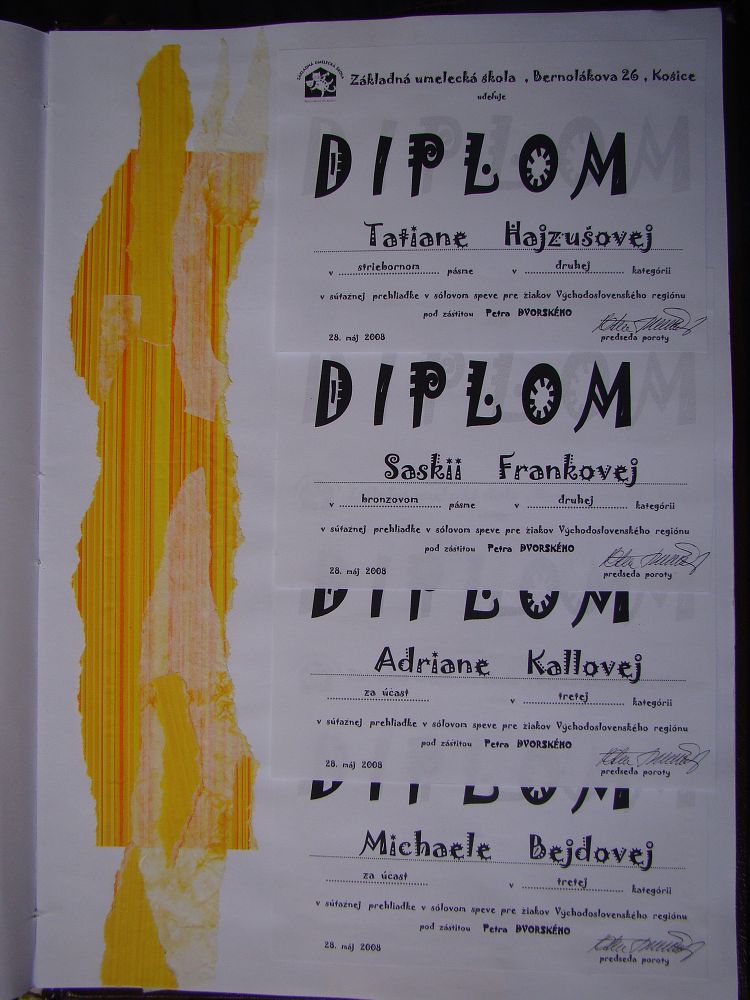 ZÁKLADNÁ UMELECKÁ ŠKOLA
Základná umelecká škola , Bernolákova 26 , Košice
udeľuje
DIPLOM
Tatiane Hajzušovej
v striebornom pásme v druhej kategórii
v súťažnej prehliadke v sólovom speve pre žiakov Východoslovenského regiónu
pod záštitou Petra DVORSKÉHO
28. máj 2008
predseda poroty
DIPLOM
Saskii Frankovej
v bronzovom pásme v druhej kategórii
v súťažnej prehliadke v sólovom speve pre žiakov Východoslovenského regiónu
pod záštitou Petra DVORSKÉHO
28. máj 2008
predseda poroty
DIPLOM
Adriane Kallovej
za účasť v tretej kategórii
v súťažnej prehliadke v sólovom speve pre žiakov Východoslovenského regiónu
pod záštitou Petra DVORSKÉHO
28. máj 2008
predseda poroty
DIPLOM
Michaele Bejdovej
za účasť v tretej kategórii
v súťažnej prehliadke v sólovom speve pre žiakov Východoslovenského regiónu
pod záštitou Petra DVORSKÉHO
28. máj 2008
predseda poroty